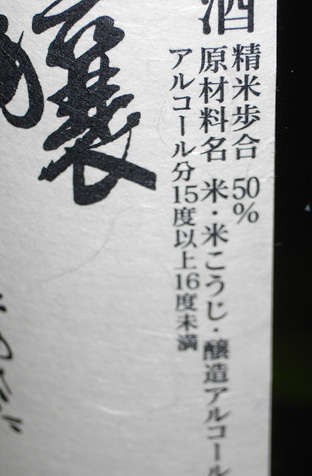 酒
精米歩合 50%
原材料名 米・米こうじ・醸造アルコール
アルコール分15度以上16度未満
醸